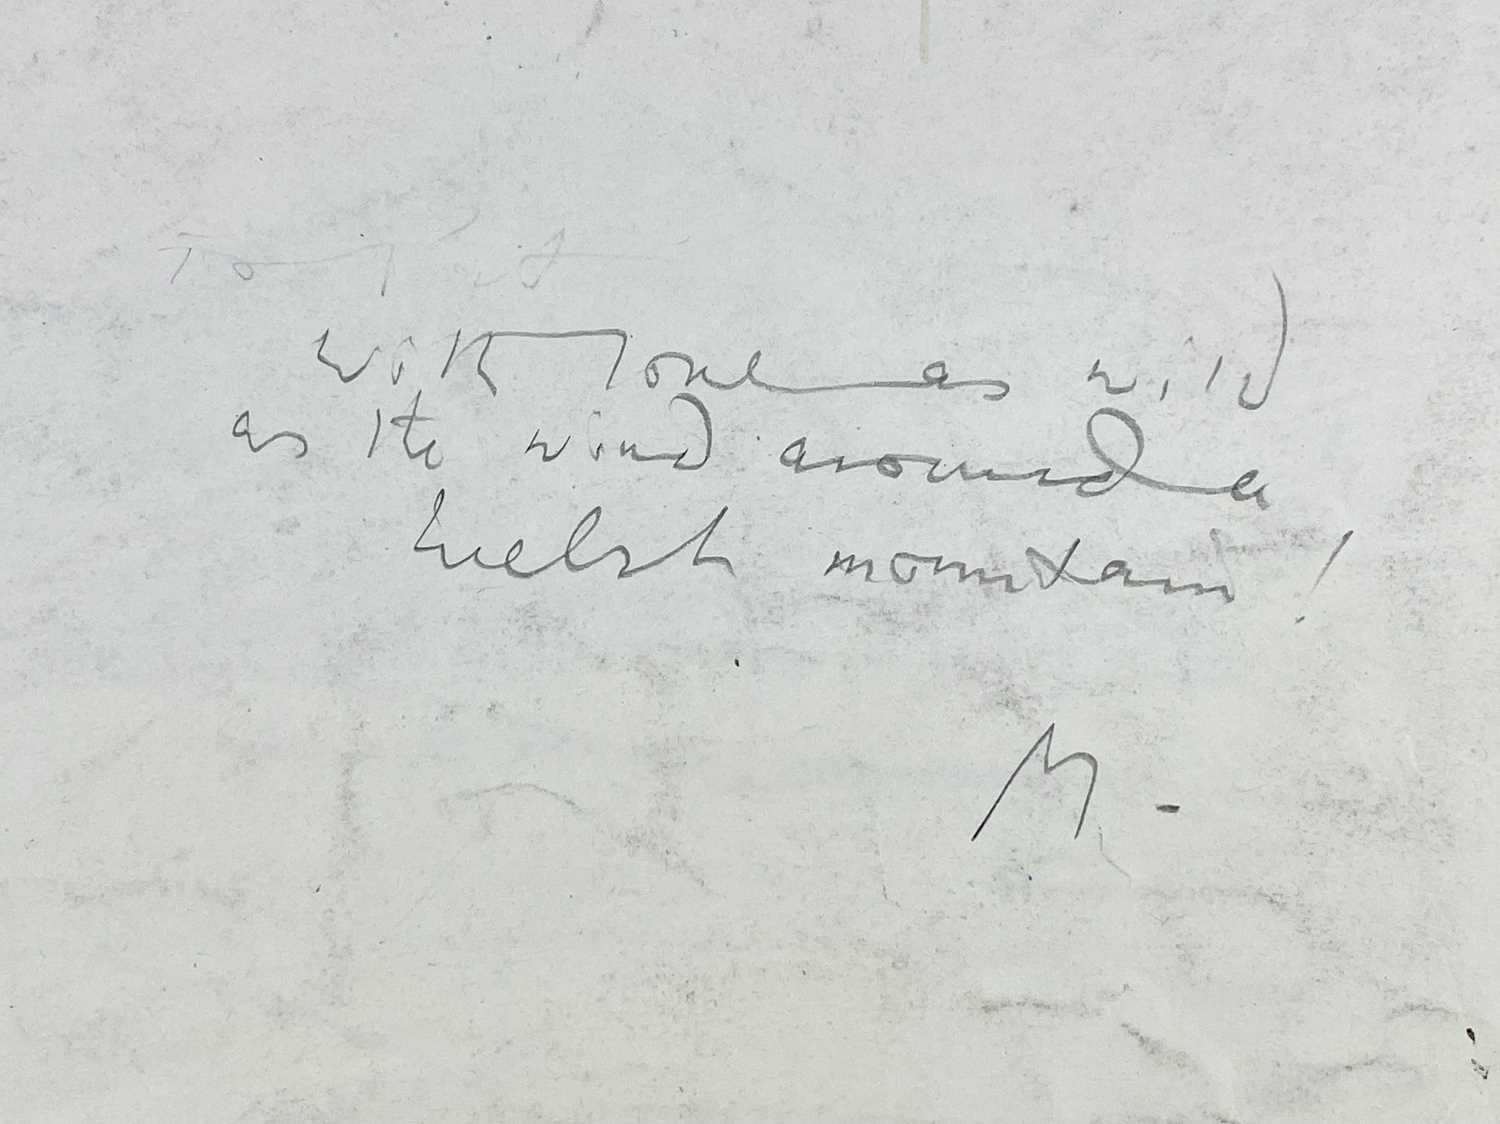 To Kit
with love as wild
as the wind around a
Welsh mountain!
M-